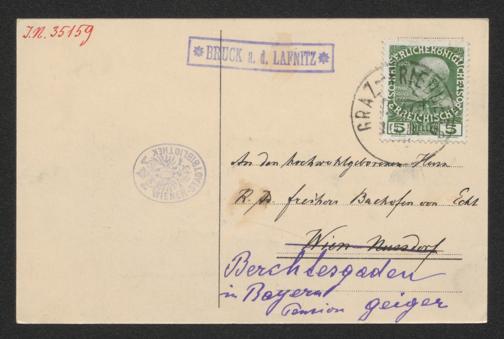 J.N. 35159
* BRUCK a. d. LAFNITZ *
KAISERLICHE KÖNIGLICHE
ÖSTERREICHISCHE
5 5
GRAZ-FRIED
WIENER STADTBIBLIOTHEK
An den hochwohlgeborenen Herrn
R. v. Freiherr Bachofen von Echt
Wien-Nussdorf
Berchtesgaden
in Bayern
Pension geiger